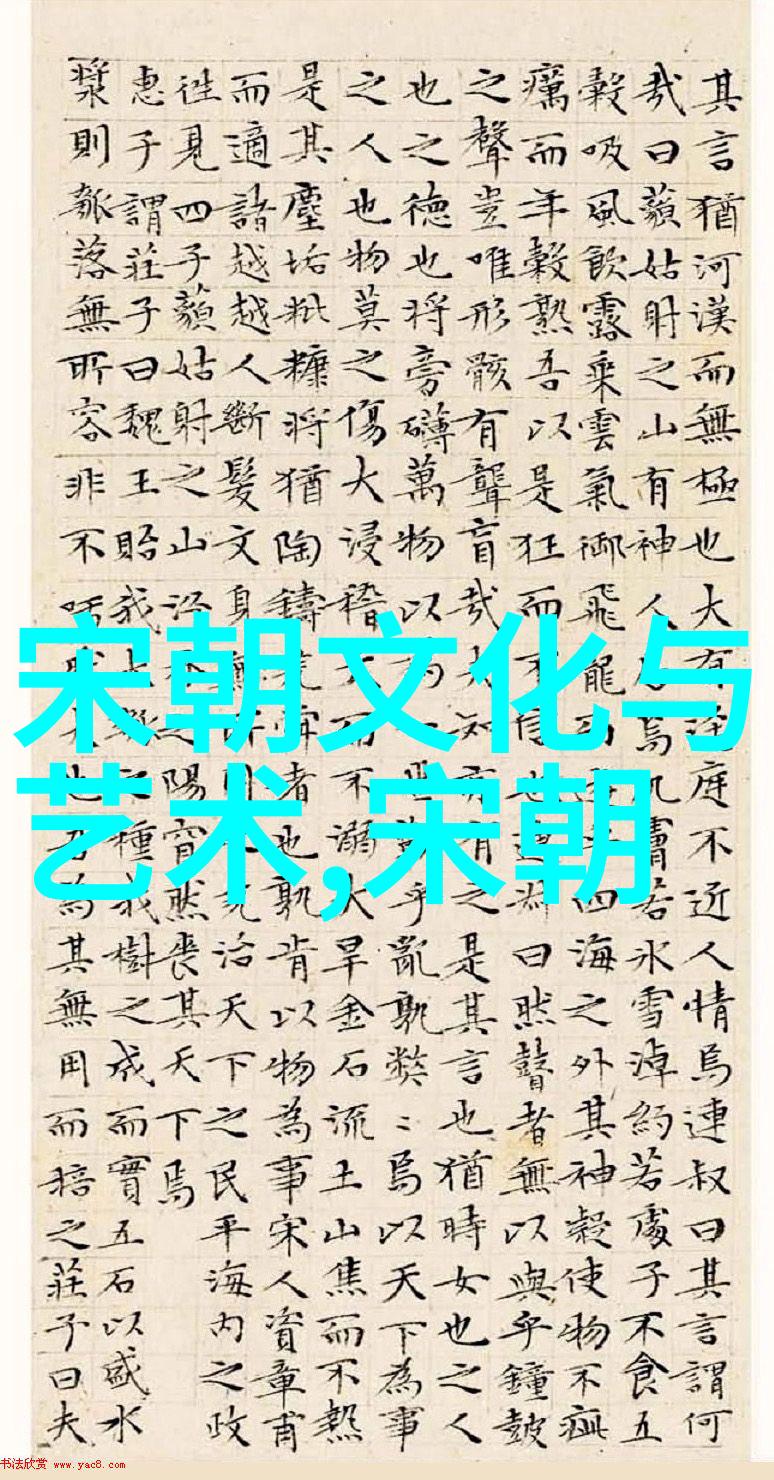 其言猶河漢而無極也大有逕庭不近人情焉連叔曰其言謂何
哉曰藐姑射之山有神人居焉肌膚若冰雪淖約若處子不食五
穀吸風飲露乘雲氣御飛龍而乎四海之外其神凝使物不疵
癘而年穀熟吾以是狂而不信也連叔曰然瞽者無以與乎鐘鼓
之聲豈唯形骸有聾盲哉夫知亦有之是其言也猶時女也之人
也之德也將旁礴萬物以為一世乎亂孰弊〻焉以天下為事
之人也物莫之傷大浸稽天而不溺大旱金石流土山焦而不熱
是其塵垢粃糠將猶陶鑄堯舜者也孰肯以物為事宋人資章甫
而適諸越越人斷髮文身無所用之堯治天下之民平海内之政
徃見四子藐姑射之山汾之陽窅然喪其天下焉
惠子謂莊子曰魏王貽我大瓠之種我樹之成而實五石以盛水
漿則瓠落無所容非不呺然大也吾為其無用而掊之莊子曰夫
宋朝文化与
艺术,宋朝
书法欣赏 www.yac8.com